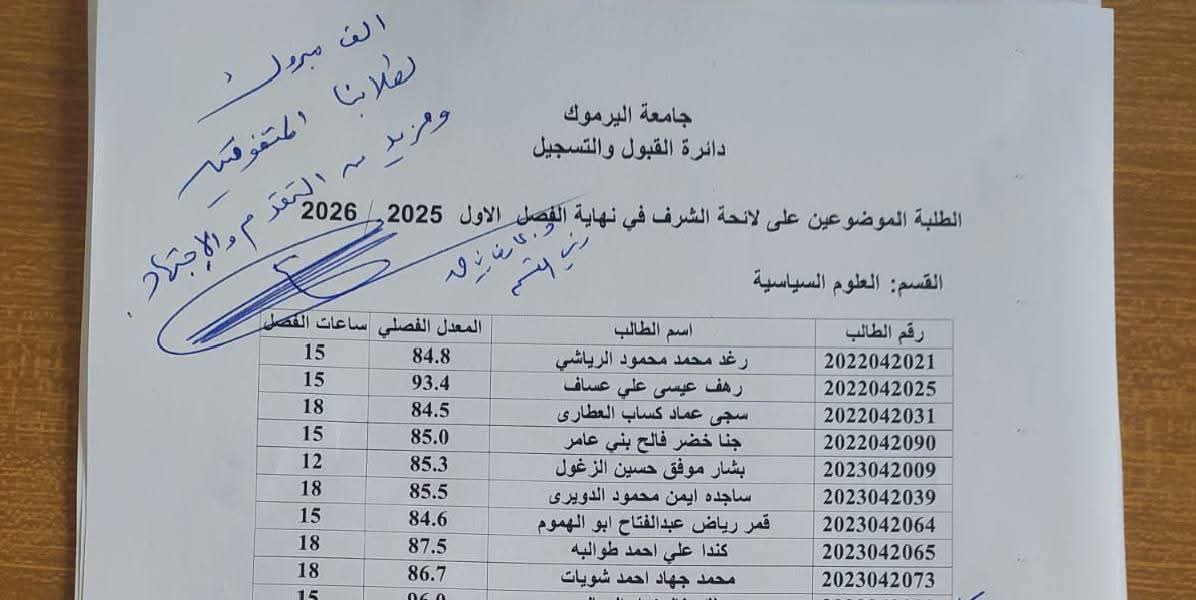 الف مبروك
لطلابنا المتفوقين
ومزيد من التقدم والإجتهاد
جامعة اليرموك
دائرة القبول والتسجيل
الطلبة الموضوعين على لائحة الشرف في نهاية الفصل الاول 2025 / 2026
رئيس القسم
القسم: العلوم السياسية
رقم الطالب اسم الطالب المعدل الفصلي ساعات الفصل
2022042021 رغد محمد محمود الرياشي 84.8 15
2022042025 رهف عيسى علي عساف 93.4 15
2022042031 سجى عماد كساب العطارى 84.5 18
2022042090 جنا خضر فالح بني عامر 85.0 15
2023042009 بشار موفق حسين الزغول 85.3 12
2023042039 ساجده ايمن محمود الدويرى 85.5 18
2023042064 قمر رياض عبدالفتاح ابو الهموم 84.6 15
2023042065 كندا علي احمد طوالبه 87.5 18
2023042073 محمد جهاد احمد شويات 86.7 18